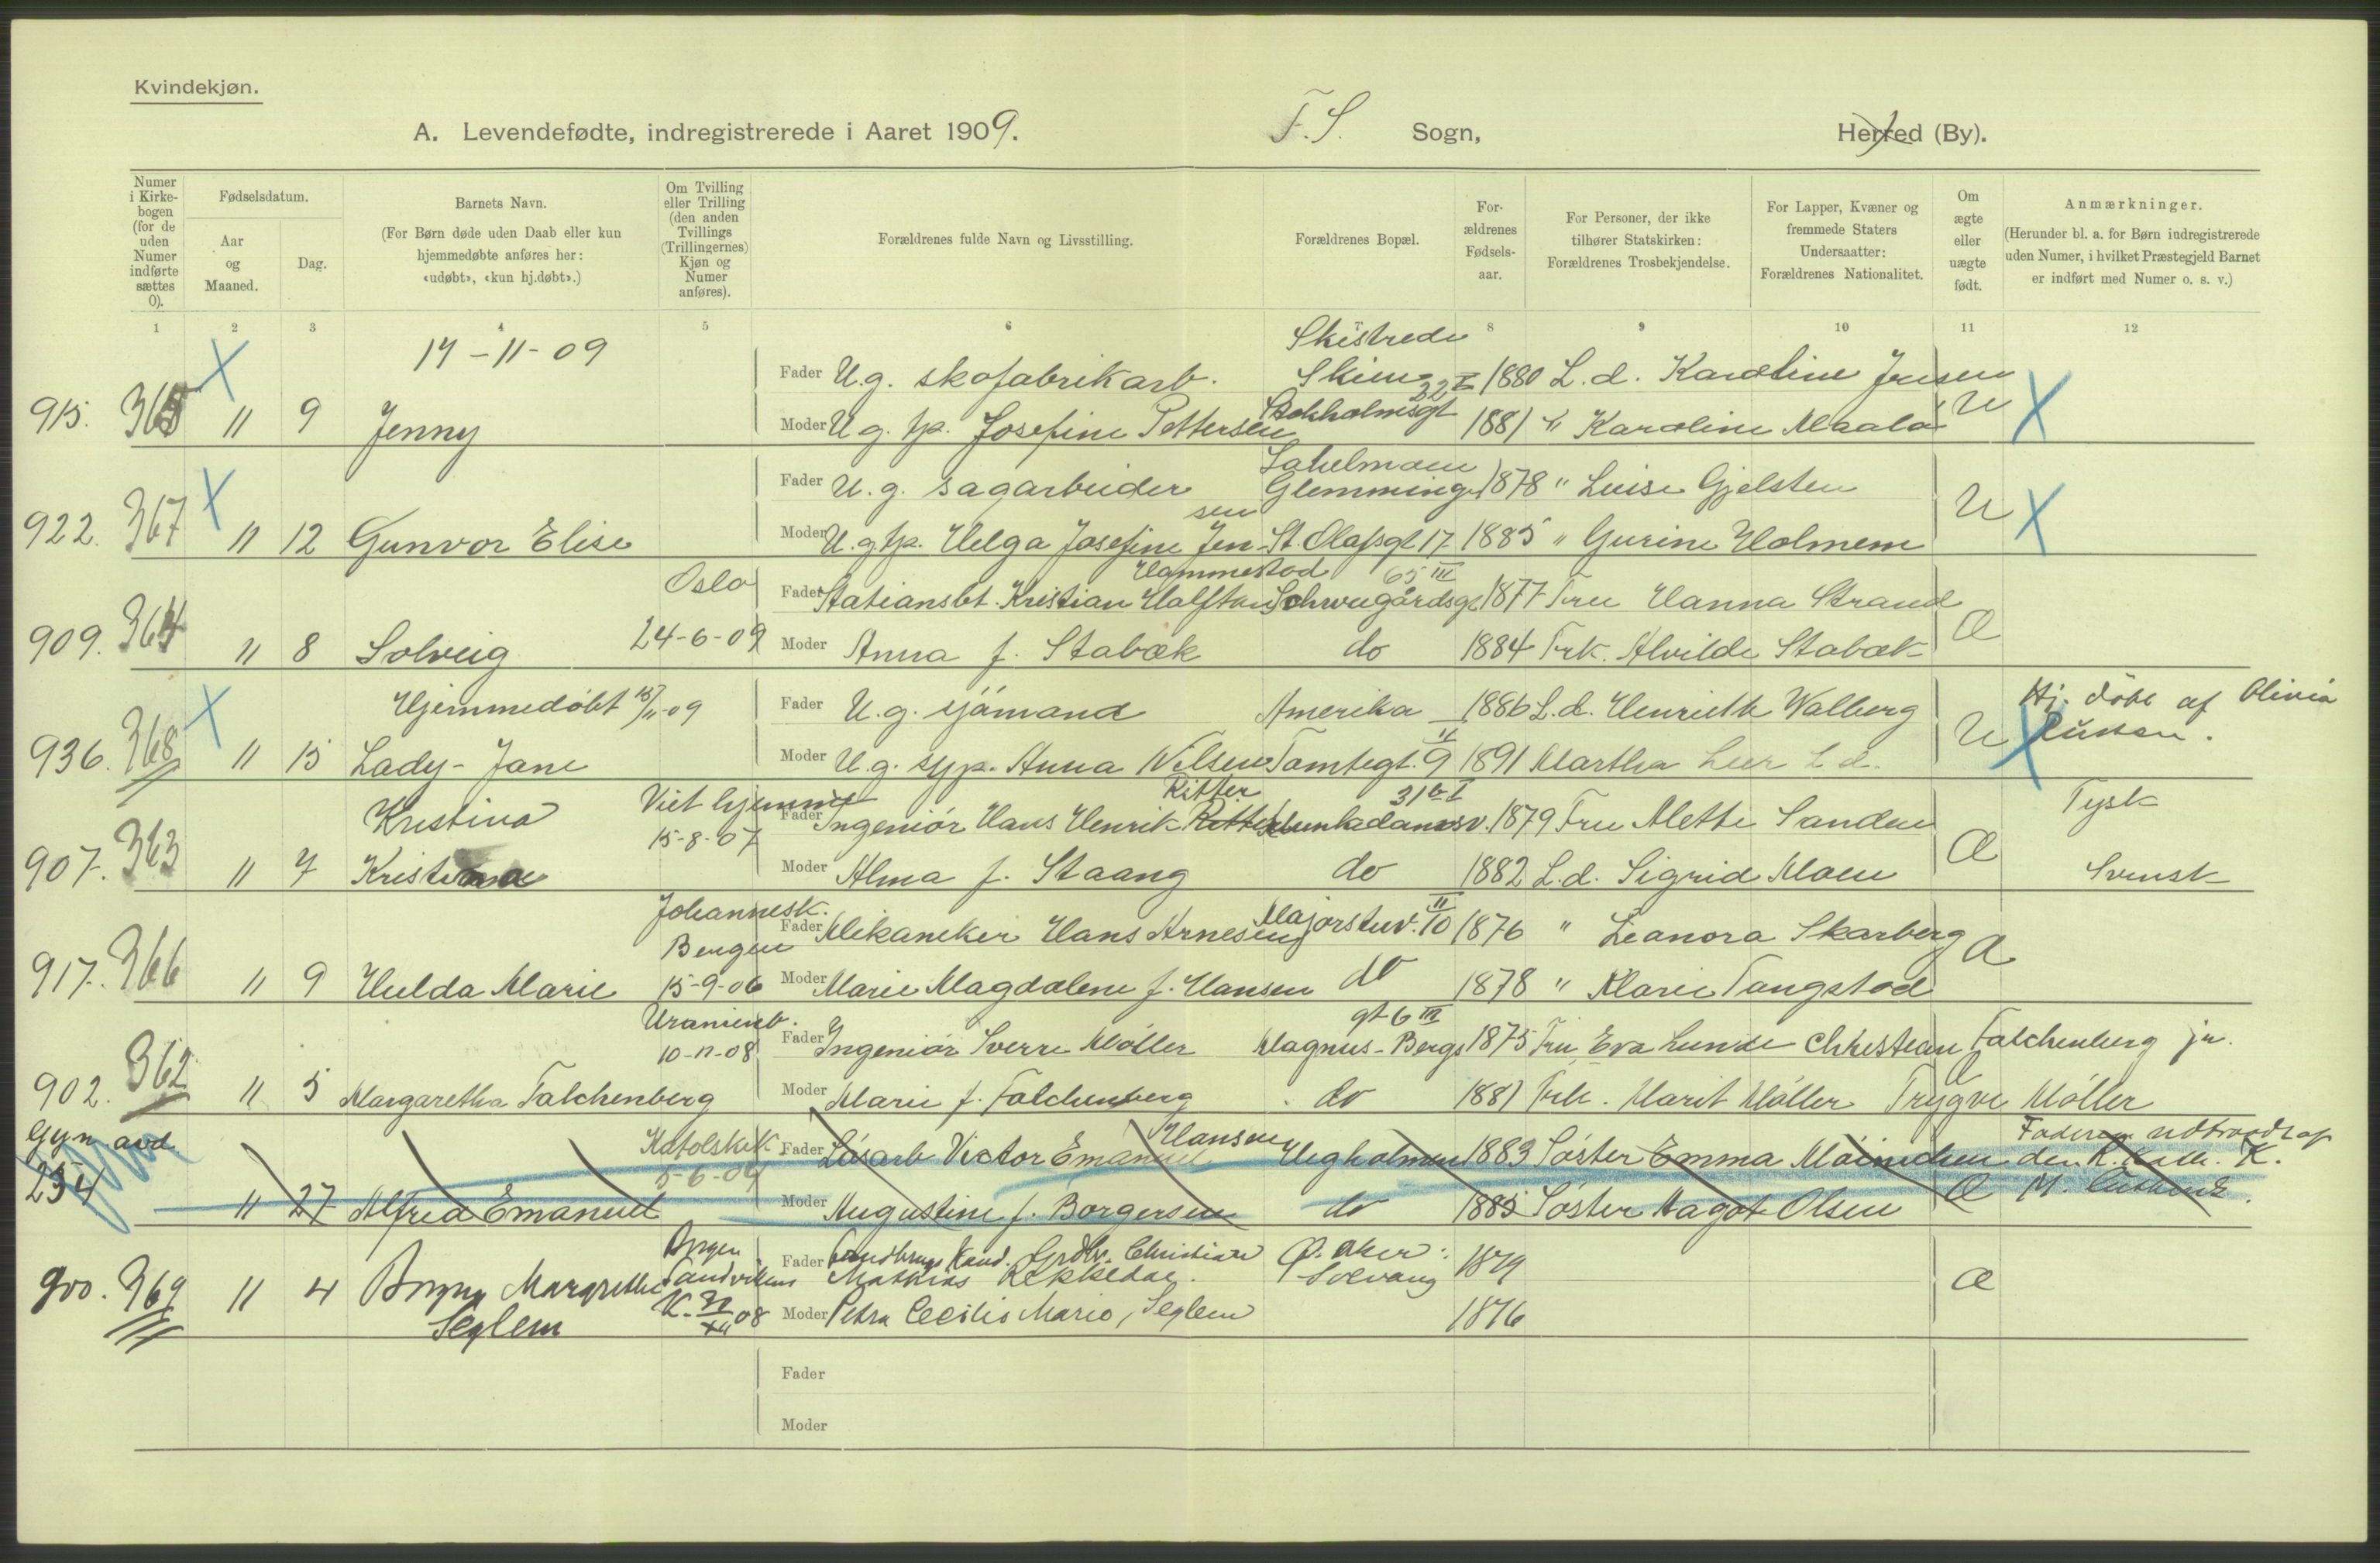 Kvindekjøn.
A. Levendefødte, indregistrerede i Aaret 1909. F. S. Sogn, Herred (By).
Numer i Kirke-bogen (for de uden Numer indførte sættes 0).
Fødselsdatum.
Aar og Maaned.
Dag.
Barnets Navn.
(For Børn døde uden Daab eller kun hjemmedøbte anføres her: «udøbt», «kun hj.døbt».)
Om Tvilling eller Trilling (den anden Tvillings (Trillingernes) Kjøn og Numer anføres).
Forældrenes fulde Navn og Livsstilling.
Forældrenes Bopæl.
For-ældrenes Fødsels-aar.
For Personer, der ikke tilhører Statskirken: Forældrenes Trosbekjendelse.
For Lapper, Kvæner og fremmede Staters Undersaatter: Forældrenes Nationalitet.
Om ægte eller uægte født.
Anmærkninger.
(Herunder bl. a. for Børn indregistrerede uden Numer, i hvilket Præstegjeld Barnet er indført med Numer o. s. v.)
1 2 3 4 5 6 7 8 9 10 11 12
17-11-09 Fader U.g. skofabrikarb. Skistrede Skien 1880 L.d. Karoline Jensen
915. 365 " 9 Jenny Moder U.g. tp. Josefine Pettersen Stokholmsgt 22 1881 " Karoline U
Fader U.g. sagarbeider Glemminge 1878 " Luise Gjelsten
922. 367 " 12 Gunvor Elise Moder U.g. tp. Helga Josefine Jensen St. Olafsgt 17 1885 " Gurine Holmem U
Oslo Fader Stationsbt. Kristian Halftan Hammestad Schweigårdsgt 65 III 1877 Fru Hanna Strand
909. 364 " 8 Solveig 24-6-09 Moder Anna f. Stabæk do 1884 Frk. Alvilde Stabæk Æ
Hjemmedøbt 15/11-09 Fader U.g. sjömand Amerika 1886 L.d. Henriette Walberg Hj. döbt af Olivia
936. 368 " 15 Lady-Jane Moder U.g. syp. Anna Nilsen Tomtegt. 9 II 1891 Martha Leer L.d. U
Kristina Viet hjemme 15-8-07 Fader Ingeniör Hans Henrik Ritter Munkedamsv. 31 b I 1879 Fru Mette Sanden Tysk
907. 363 " 7 Moder Alma f. Staang do 1882 L.d. Sigrid Moen Æ Svensk
Johannesk. Bergen Fader Mekaniker Hans Arnesen Majorstuv. 10 II 1876 " Leanora Skarberg
917. 366 " 9 Hulda Marie 15-9-06 Moder Marie Magdalene f. Hansen do 1878 " Marie Tangstad Æ
Uranienb. 10-11-08 Fader Ingeniör Sverre Möller Magnus-Bergs gt 6 III 1875 Fru Eva Lunde Christian Falchenberg jr.
902. 362 " 5 Margaretha Falchenberg Moder Marie f. Falchenberg do 1881 Frk. Marit Möller Trygve Möller Æ
Gyn. avd. Katolsk K. 5-6-09 Fader Lösarb Victor Emanuel Hansen Hegholmen 1883 Söster Emma Faderen udtraadt af den R. Kath. K.
254 " 27 Alfred Emanuel Moder Augustine f. Borgersen do 1885 Söster Aagot Olsen Æ
Bergen Sandvikens K. 08 Fader Kand. Christian Mathias Rekkedal Ø. Aker: Solvang 1879
900. 369 " 4 Borgny Margrethe Seglem Moder Petra Cecilie Marie, Seglem 1876 Æ
Fader
Moder